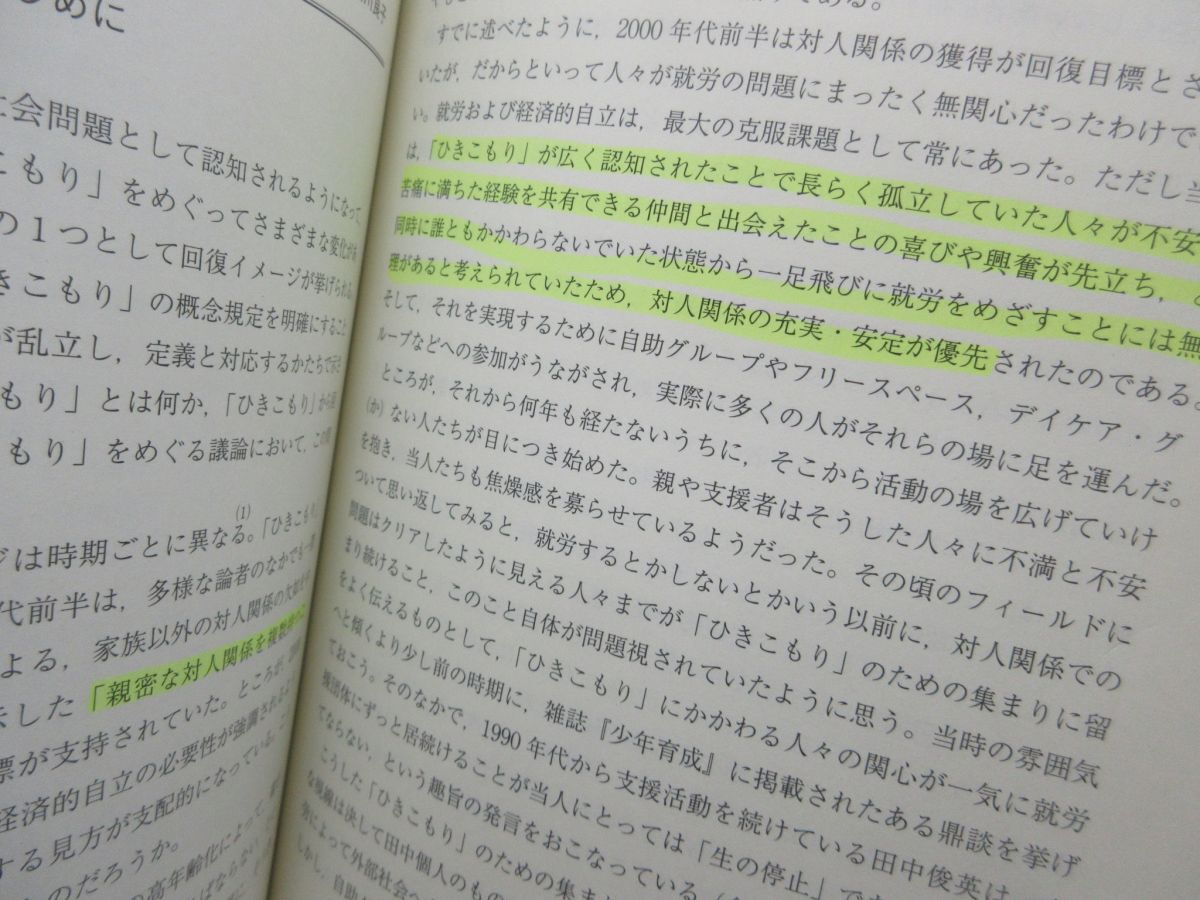 じめに
社会問題として認知されるようになって
こもり」をめぐってさまざまな変化が
の1つとして回復イメージが挙げられる
きこもり」の概念規定を明確にすること
が乱立し，定義と対応するかたちで
もり」とは何か，「ひきこもり」から
もり」をめぐる議論において，この
ジは時期ごとに異なる。(1)「ひきこもり」
代前半は，多様な論者のなかでも
よる，家族以外の対人関係の
示した「親密な対人関係を複数
標が支持されていた。ところが，
経済的自立の必要性が強調され
する見方が支配的になっている。
のだろうか。
の高年齢化によって，
である。
すでに述べたように，2000年代前半は対人関係の獲得が回復目標とさ
いたが，だからといって人々が就労の問題にまったく無関心だったわけで
い。就労および経済的自立は，最大の克服課題として常にあった。ただし当
は，「ひきこもり」が広く認知されたことで長らく孤立していた人々が不安
苦痛に満ちた経験を共有できる仲間と出会えたことの喜びや興奮が先立ち，
同時に誰ともかかわらないでいた状態から一足飛びに就労をめざすことには無
理があると考えられていたため，対人関係の充実・安定が優先されたのである。
そして，それを実現するために自助グループやフリースペース，デイケア・グ
ループなどへの参加がうながされ，実際に多くの人がそれらの場に足を運んだ。
ところが，それから何年も経たないうちに，そこから活動の場を広げていけ
（か）ない人たちが目につき始めた。親や支援者はそうした人々に不満と不安
を抱き，当人たちも焦燥感を募らせているようだった。その頃のフィールドに
ついて思い返してみると，就労するとかしないとかいう以前に，対人関係での
問題はクリアしたように見える人々までが「ひきこもり」のための集まりに留
まり続けること，このこと自体が問題視されていたように思う。当時の雰囲気
をよく伝えるものとして，「ひきこもり」にかかわる人々の関心が一気に就労
へと傾くより少し前の時期に，雑誌『少年育成』に掲載されたある鼎談を挙げ
ておこう。そのなかで，1990年代から支援活動を続けている田中俊英は，
援団体にずっと居続けることが当人にとっては「生の停止」で
てならない，という趣旨の発言をおこなっている
こうした「ひきこもり」のための集ま
な現線は決して田中個人のもの
によって外部社会へ
しかし，自助